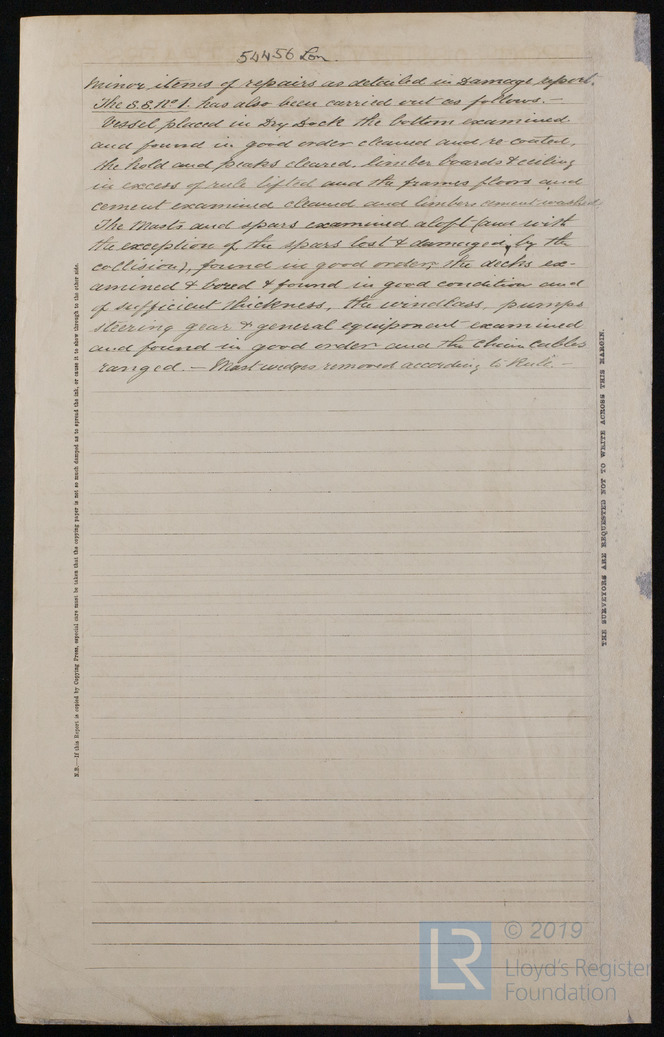 54456 Lon.
Minor items of repairs as detailed in Damage report.
The S.S. No 1. has also been carried out as follows. —
Vessel placed in Dry Dock the bottom examined
and found in good order cleaned and re coated,
the hold and peaks cleared, limber boards & ceiling
in excess of rule lifted and the frames floors and
cement examined cleaned and limbers cement washed
The Masts and spars examined aloft (and with
the exception of the spars lost & damaged by the
collision), found in good order, the decks ex-
amined & bored & found in good condition and
of sufficient thickness, the windlass, pumps
steering gear & general equipment examined
and found in good order and the chain cables
ranged. — Mast wedges removed according to Rule. —
N.B.—If this Report is copied by Copying Press, especial care must be taken that the copying paper is not so much damped as to spread the ink, or cause it to show through to the other side.
THE SURVEYORS ARE REQUESTED NOT TO WRITE ACROSS THIS MARGIN.
LR
© 2019
Lloyd's Register
Foundation